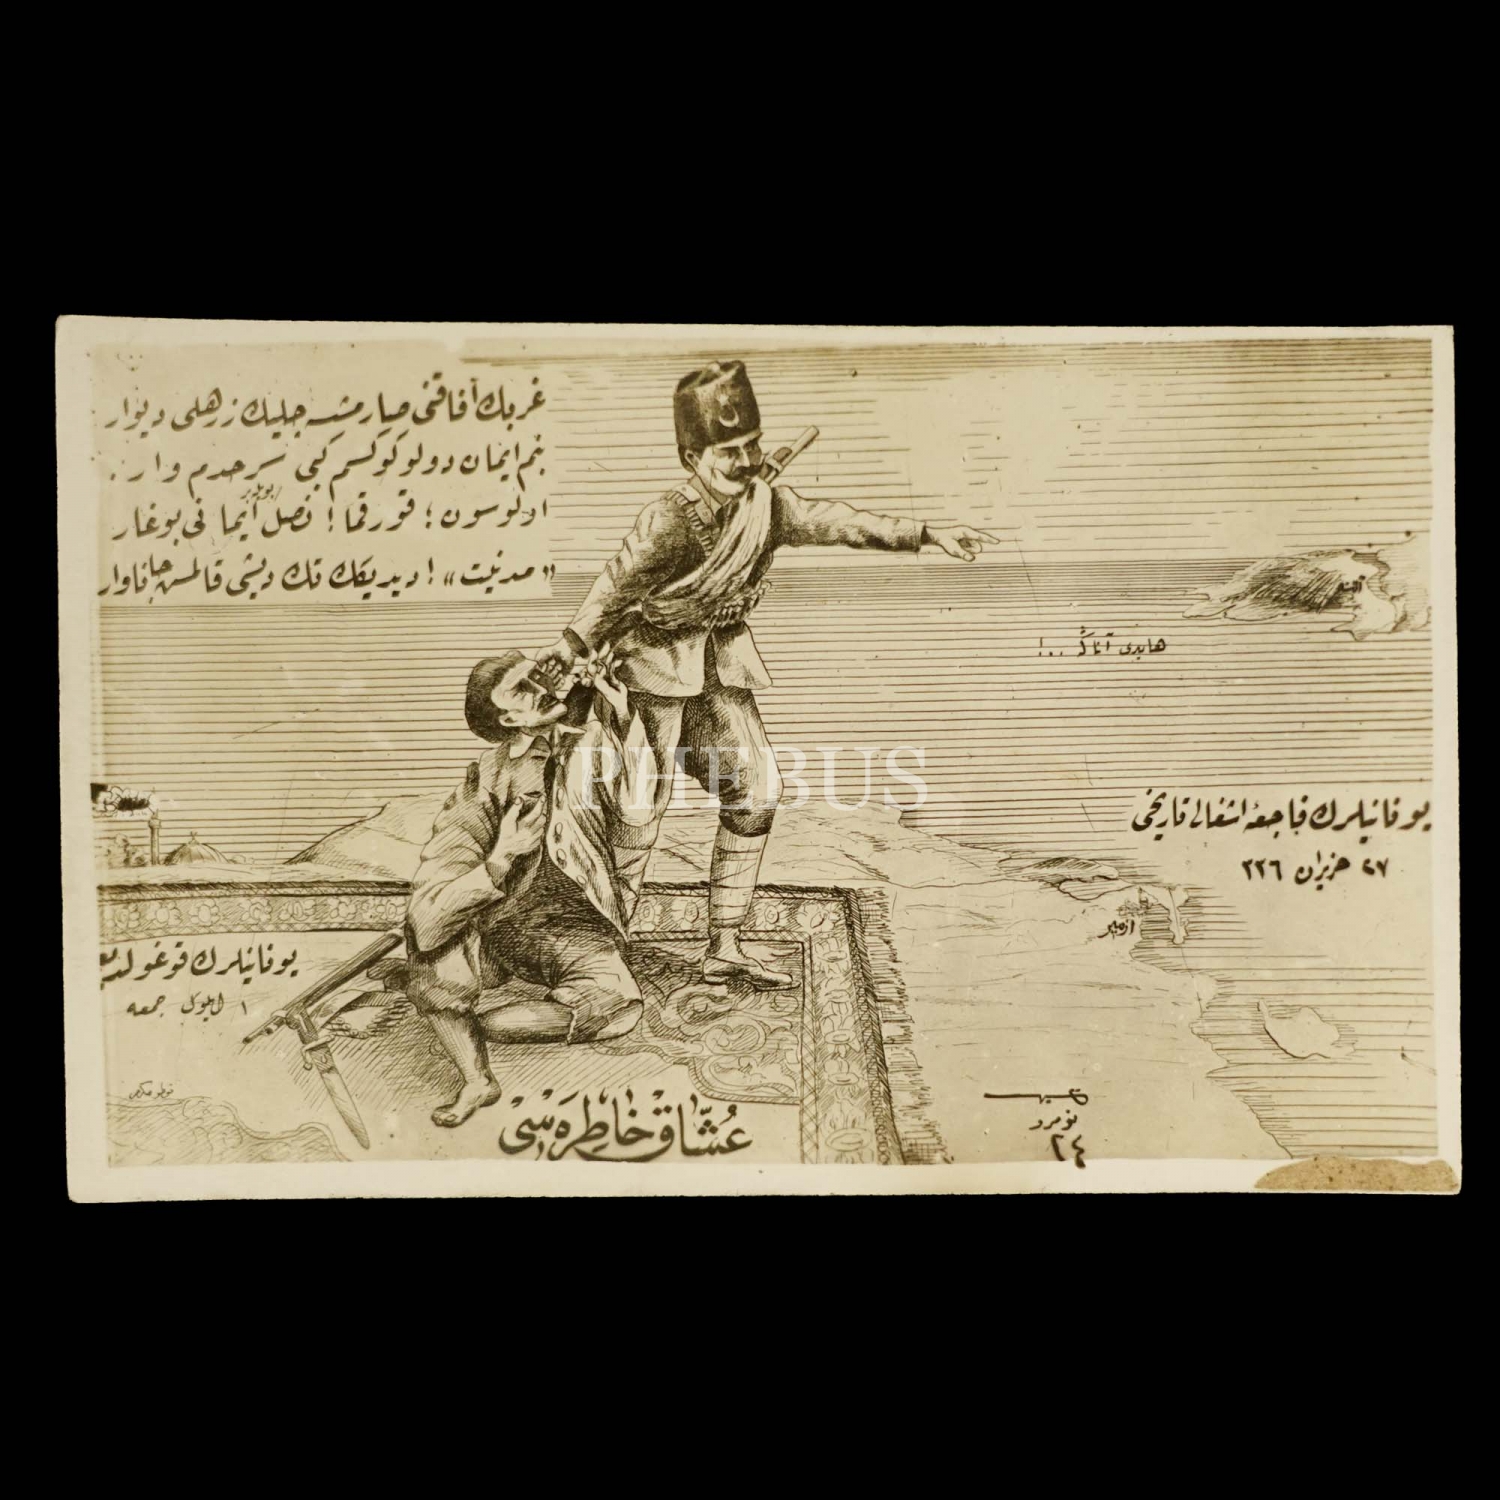 غربك آفاقنى صارمشسه چليك زرهلى ديوار
بنم ايمان دولو كوكسم كبى سرحدم وار.
اولوسون؛ قورقما! نصل بويله بر ايمانى بوغار
«مدنيت»! ديديكك تك ديشى قالمش جاناوار
آتنه
هايدى آناڭ ..!
يونانيلرك فاجعهٔ اشغالى تاريخى
٢٧ حزيران ٣٣٦
ازمير
يونانيلرك قوغولديغى
١ ايلول جمعه
PHEBUS
عُشّاق خاطِرَه سى
نومرو
٢٤